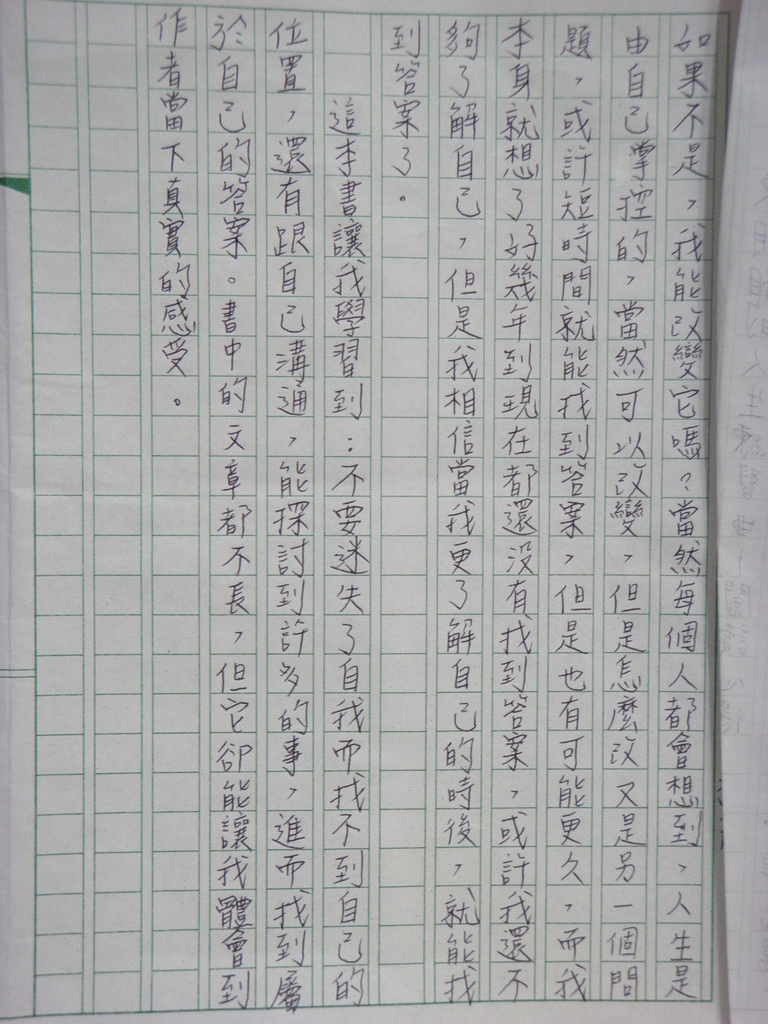 如果不是，我能改變它嗎？當然每個人都會想到，人生是
由自己掌控的，當然可以改變，但是怎麼改又是另一個問
題，或許短時間就能找到答案，但是也有可能更久，而我
本身就想了好幾年到現在都還沒有找到答案，或許我還不
夠了解自己，但是我相信當我更了解自己的時後，就能找
到答案了。
這本書讓我學習到：不要迷失了自我而找不到自己的
位置，還有跟自己溝通，能探討到許多的事，進而找到屬
於自己的答案。書中的文章都不長，但它卻能讓我體會到
作者當下真實的感受。